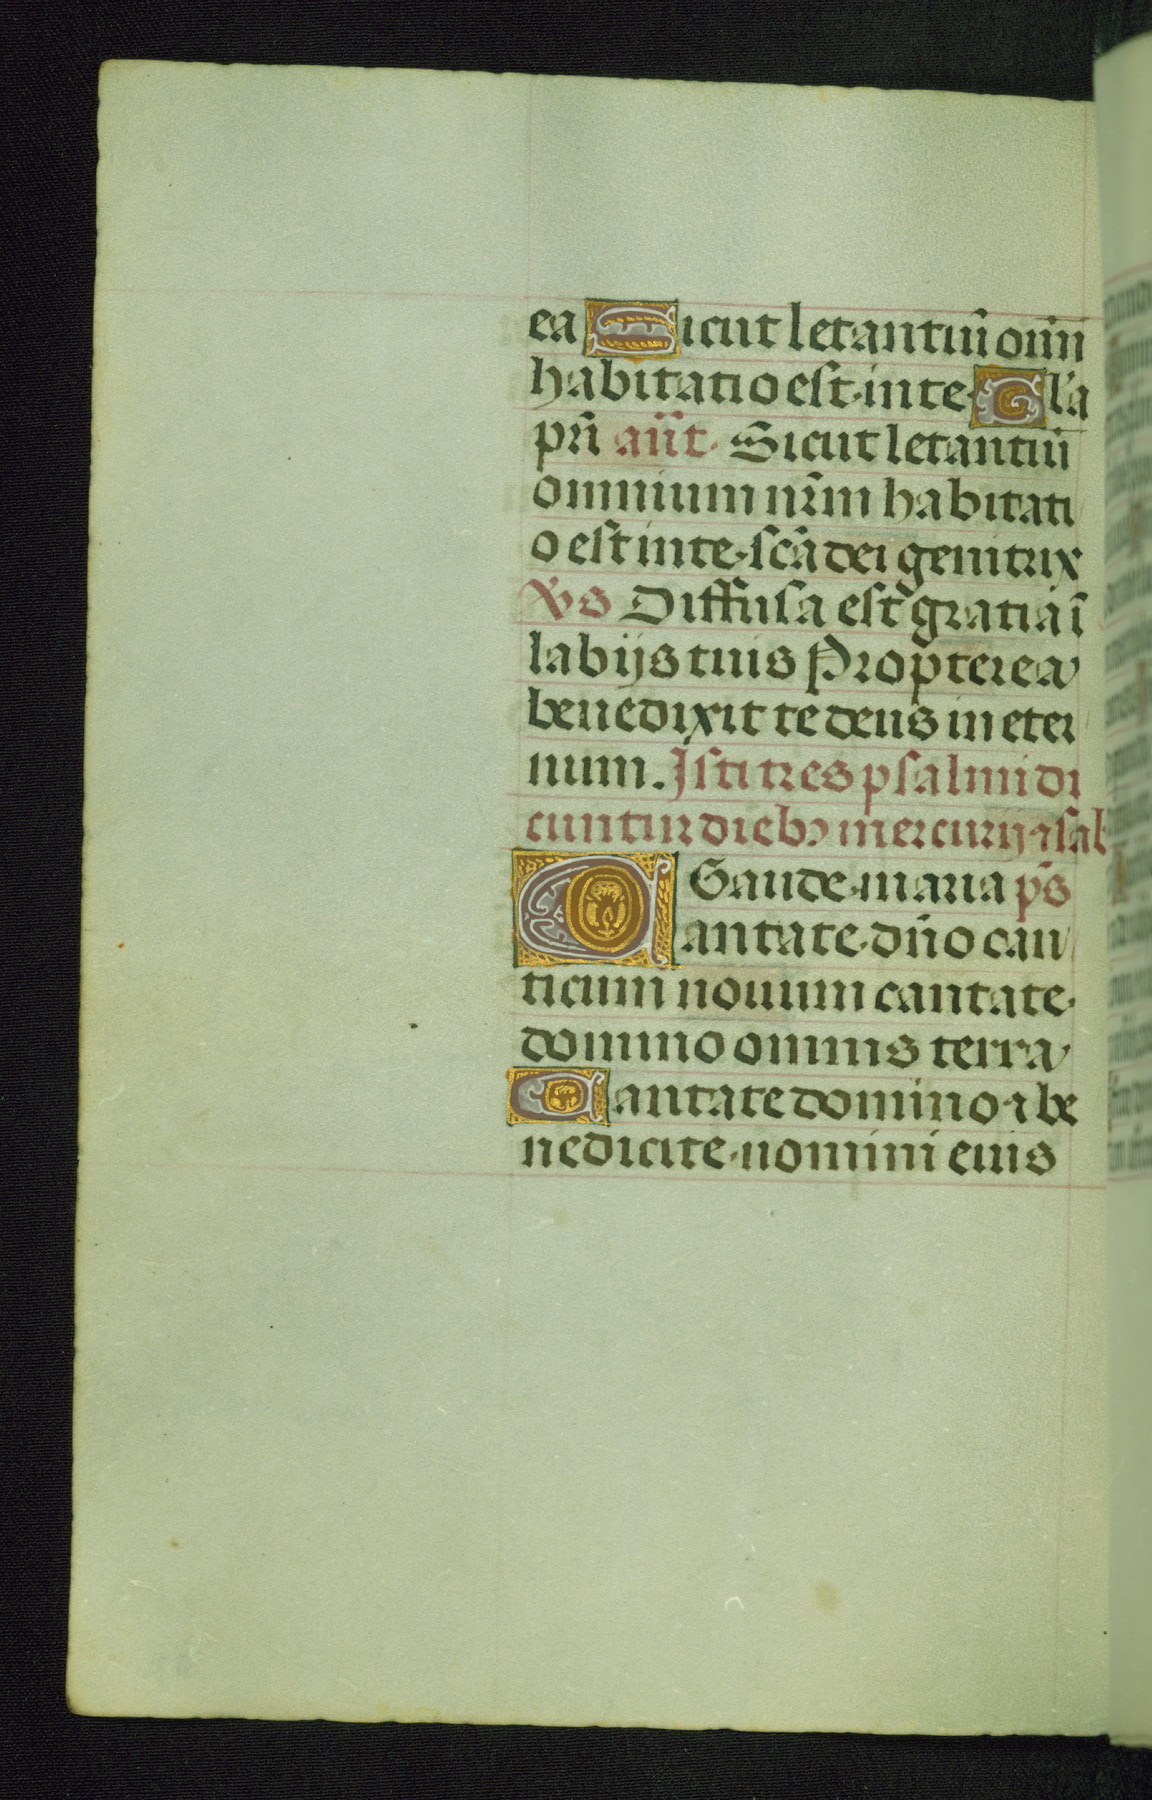 ea Sicut letantiū om̄i
habitatio est in te Gl'a
pr̄i an̄t. Sicut letantiū
omnium nr̄m habitati
o est in te scā dei genitrix
V̓s Diffusa est gratia ī
labijs tuis Propterea
benedixit te deus in eter
num. Isti tres psalmi di
cuntur diebꝫ mercurij ⁊ sab
Gaude maria p̄s
Cantate dn̄o can
ticum nouum cantate
domino omnis terra
Cantate domino ⁊ be
nedicite nomini eius